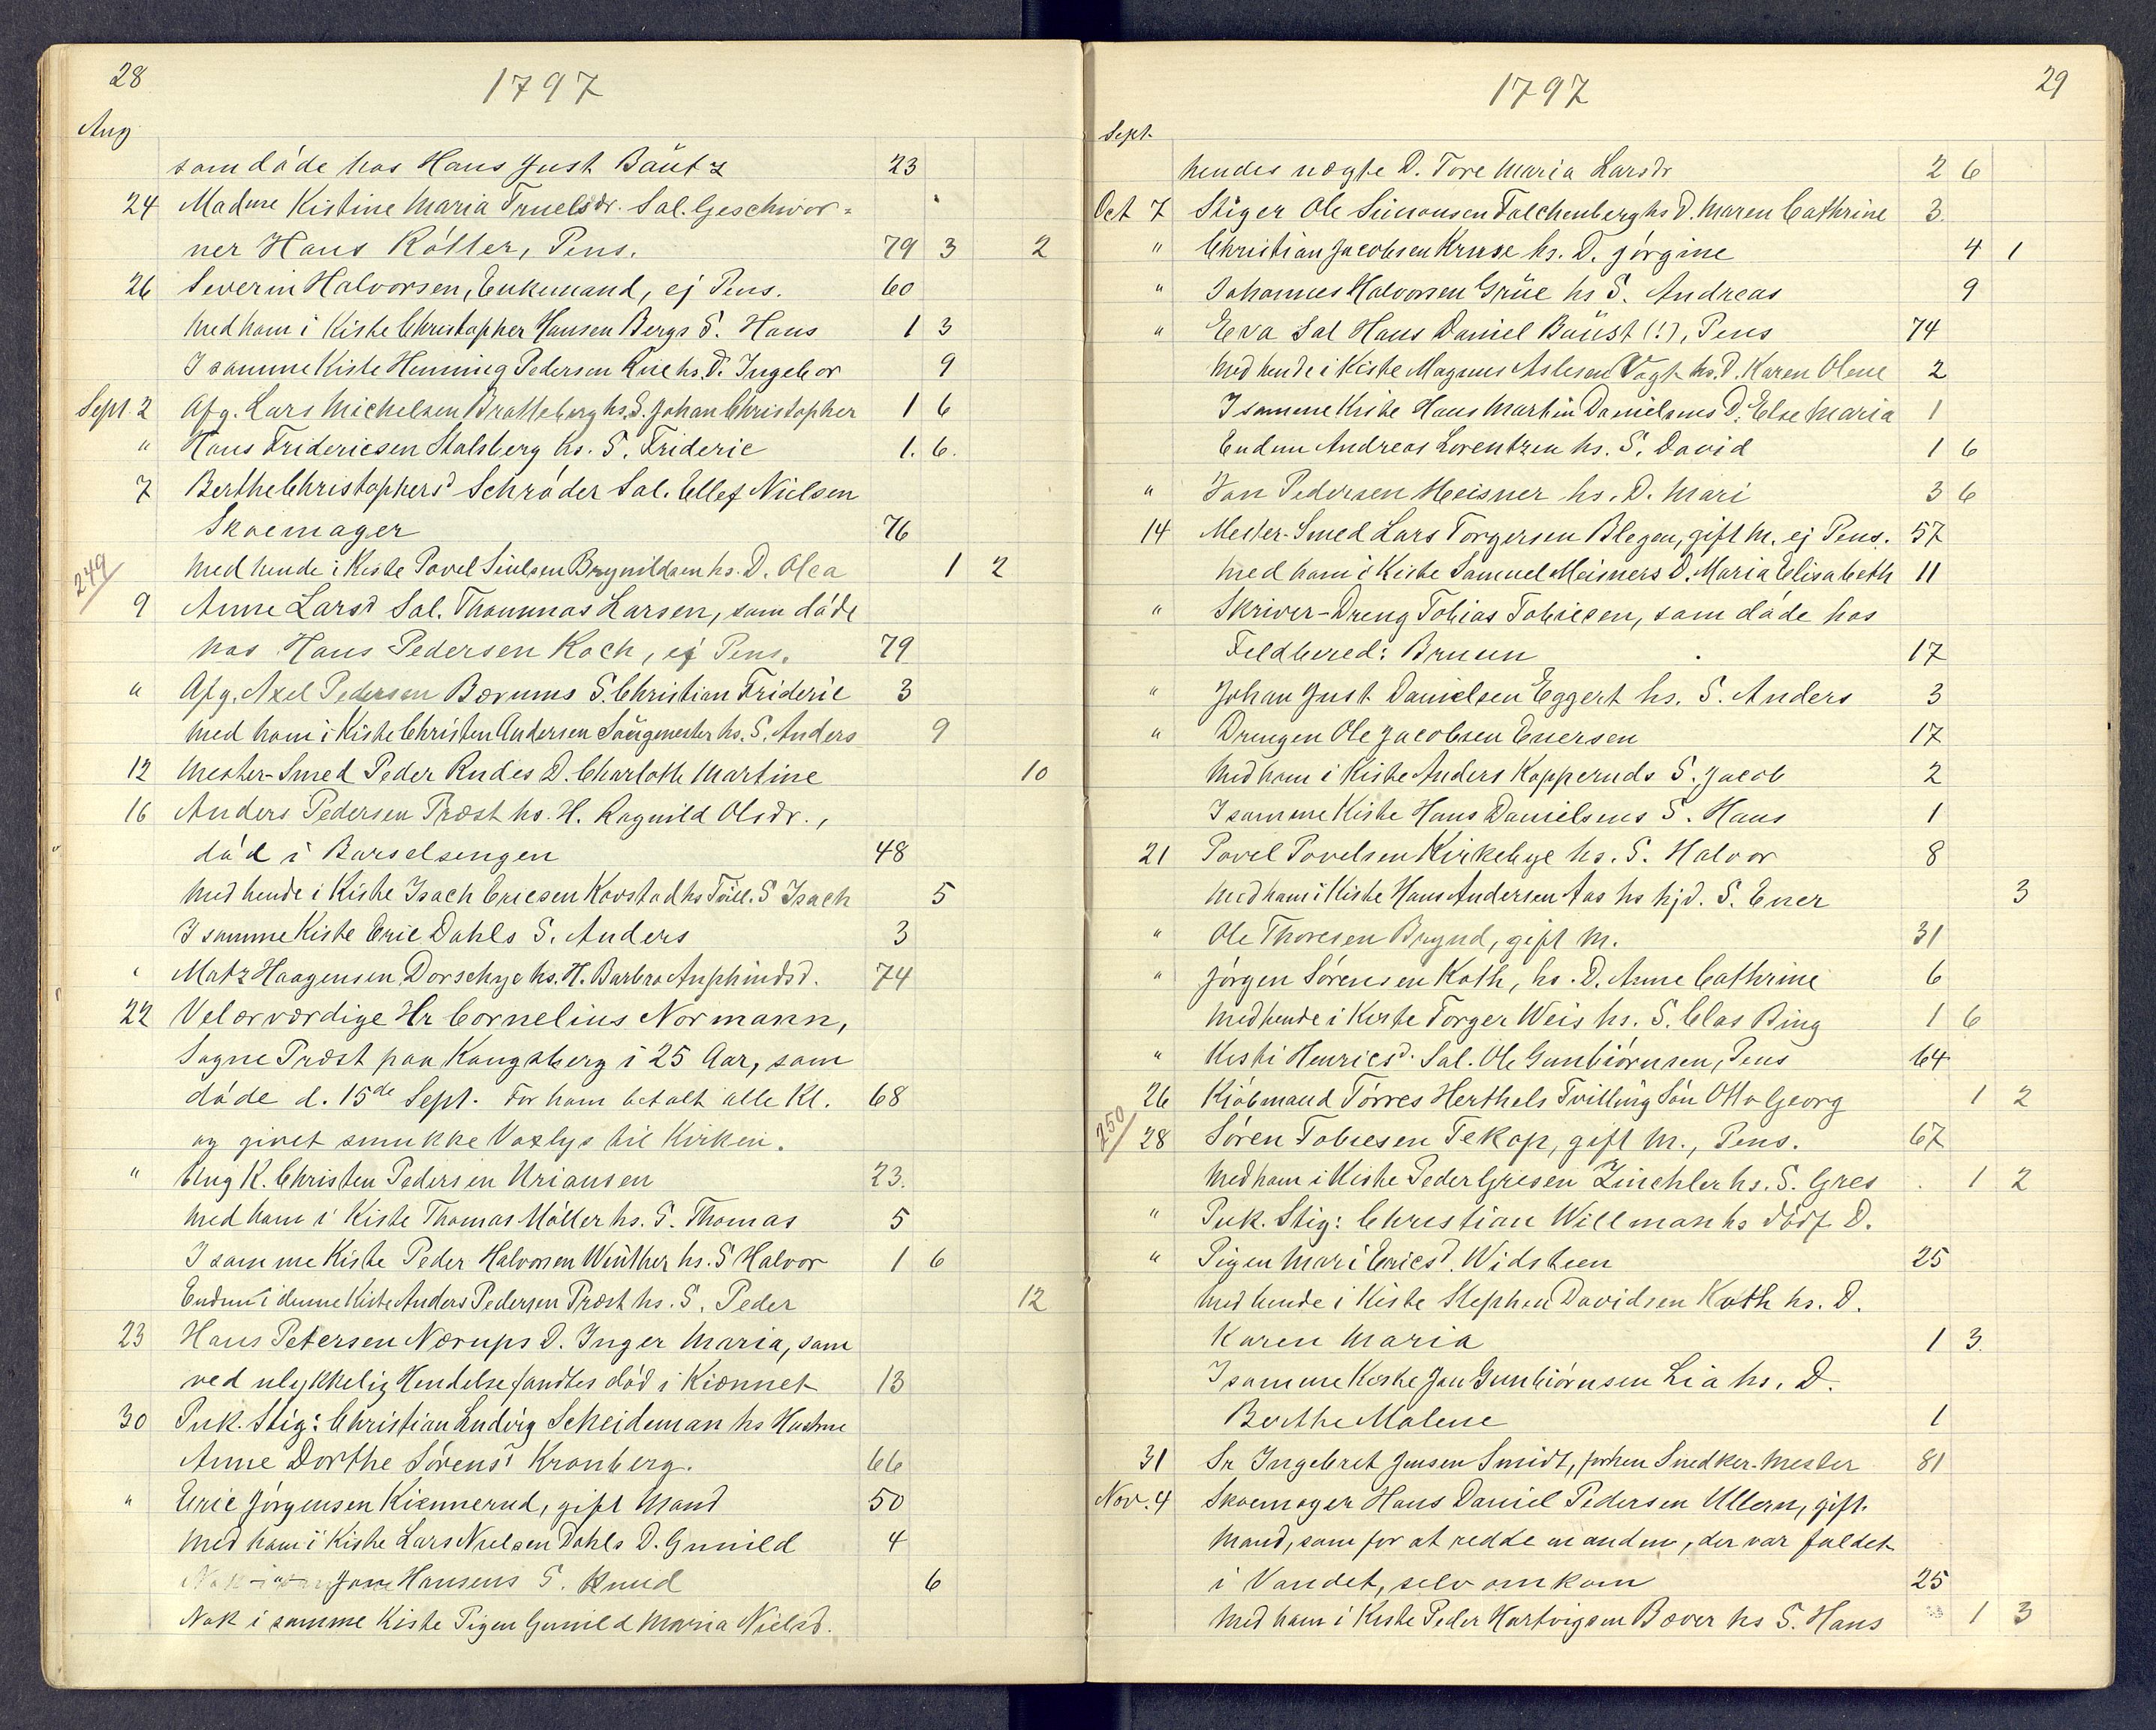 28
1797
Aug
som döde hos Hans Just Bäutz 23
24 Madme Kistine Maria Truelsdr. Sal. Geschwor=
ner Hans Kötter, Pens. 79 3 2
26 Severin Halvorsen, Enkemand, ej Pens. 60
Med ham i Kiste Christopher Hansen Bergs S. Hans 1 3
I samme Kiste Henning Pedersen Rue hs. D. Ingebor 9
Sept. 2 Afg. Lars Michelsen Bratteberg hs. S. Johan Christopher 1 6
" Hans Fridericsen Stalsberg hs. S. Frideric 1. 6.
7 Berthe Christophersd Schröder Sal. Ellef Nielsen
Skoemager 76
249
Med hende i Kiste Povel Siulsen Brynildsen hs. D. Olea 1 2
9 Anne Larsd Sal. Thommas Larsen, som döde
hos Hans Pedersen Koch, ej Pens. 79
" Afg. Axel Pedersen Bærums S. Christian Frideric 3
med ham i Kiste Christen Andersen Sängmester hs. S. Anders 9
12 Mester-Smed Peder Rudes D. Charlothe Martine 10
16 Anders Pedersen Præst hs. H. Ragnild Olsdr.,
död i Barselsengen 48
Med hende i Kiste Isach Ericsen Kovstad hs Tvill. S Isach 5
I samme Kiste Eric Dahls S. Anders 3
" Matz Haagensen Dorschye hs. H. Barbra Anphindsd. 74
22 Velærværdige Hr Cornelius Normann,
Sogne Præst paa Kongsberg i 25 Aar, som
döde d. 15de Sept. For ham betalt alle Kl. 68
og givet smukke Voxlys til Kirken.
" Ung K. Christen Pedersen Uriansen 23.
Med ham i Kiste Thomas Möller hs. S. Thomas 5
I samme Kiste Peder Halvorsen Winther hs. S Halvor 1 6
Endnu i denne Kiste Anders Pedersen Præst hs. S. Peder 12
23 Hans Petersen Nærups D. Inger Maria, som
ved ulykkelig Hendelse fandtes död i Kiønnet 13
30 Puk. Stig: Christian Ludvig Scheideman hs Hustrue
Anne Dorthe Sörensd Kronberg. 66
" Eric Jörgensen Kiennerud, gift Mand 50
Med ham i Kiste Lars Nielsen Dahls D. Gunild 4
Jone Hansens S. Knud 6
Nok i samme Kiste Pigen Gunild Maria Nielsd.
29
1797
Sept.
hendes uægte D. Tore Maria Larsdr 2 6
Oct 7 Stiger Ole Simonsen Falchenberg hs D. Maren Cathrine 3
" Christian Jacobsen Kruse hs. D. Jörgine 4 1
" Johannes Halvorsen Grüe hs S. Andreas 9
" Eva Sal Hans Daniel Bäust (!), Pens 74
Med hende i Kiste Magnus Aslesen Vogt hs. D. Karen Olene 2
I samme Kiste Hans Martin Danielsens D. Else Maria 1
Endnu Andreas Lorentzen hs. S. David 1 6
" Jan Pedersen Meisner hs. D. Mari 3 6
14 Mester-Smed Lars Torgersen Blegen, gift M. ej Pens. 57
Med ham i Kiste Samuel Meisners D. Maria Elisabeth 11
" Skriver-Dreng Tobias Tobiesen, som döde hos
Feldbered: Bruun 17
" Johan Just Danielsen Eggert hs. S. Anders 3
" Drengen Ole Jacobsen Enersen 17
Med ham i Kiste Anders Kopperuds S. Jacob 2
I samme Kiste Hans Danielsens S. Hans 1
21 Povel Povelsen Kirkebye hs. S. Halvor 8
Med ham i Kiste Hans Andersen Aas hs hjd. S. Ener 3
" Ole Thoresen Brynd, gift M. 31
" Jörgen Sörensen Koth, hs. D. Anne Cathrine 6
Med hende i Kiste Torger Weis hs. S. Clas Bing 1 6
" Kisti Henricsd. Sal. Ole Gunbiörnsen, Pens 64
26 Kiöbmand Törres Herthels Tvilling Sön Otto Georg 1 2
250
28 Sören Tobiesen Tekop, gift M., Pens. 67
Med ham i Kiste Peder Gresen Zinchler hs. S. Gres 1 2
" Puk. Stig: Christian Willman hs dödf. D.
" Pigen Mari Ericsd. Widsteen 25
Med hende i Kiste Stephen Davidsen Koth hs. D.
Karen Maria 1 3.
I samme Kiste Jan Gunbiörnsen Lia hs. D.
Berthe Malene 1
31 Sr Ingebret Jensen Smidt, forhen Snedker-Mester 81
Nov. 4 Skoemager Hans Daniel Pedersen Ullern, gift.
Mand, som for at redde en anden, der var faldet
i Vandet, selv omkom 25
Med ham i Kiste Peder Hartvigsen Bæver hs S. Hans 1 3